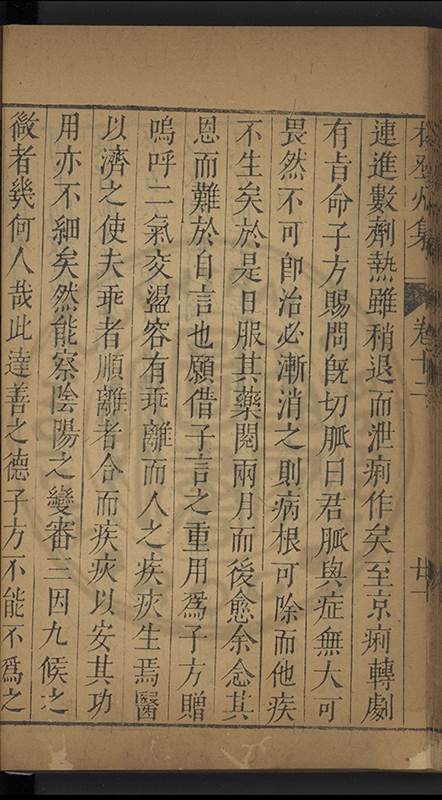 集 卷十二 廿一
連進數劑熱雖稍退而泄痢作矣至京痢轉劇
有旨命子方賜問旣切脈曰君脈與症無大可
畏然不可卽治必漸消之則病根可除而他疾
不生矣於是日服其藥閱兩月而後愈余念其
恩而難於自言也願借子言之重用爲子方贈
嗚呼二氣交盪容有乖離而人之疾疢生焉醫
以濟之使夫乖者順離者合而疾疢以安其功
用亦不細矣然能察陰陽之變審三因九候之
徵者幾何人哉此達善之德子方不能不爲之